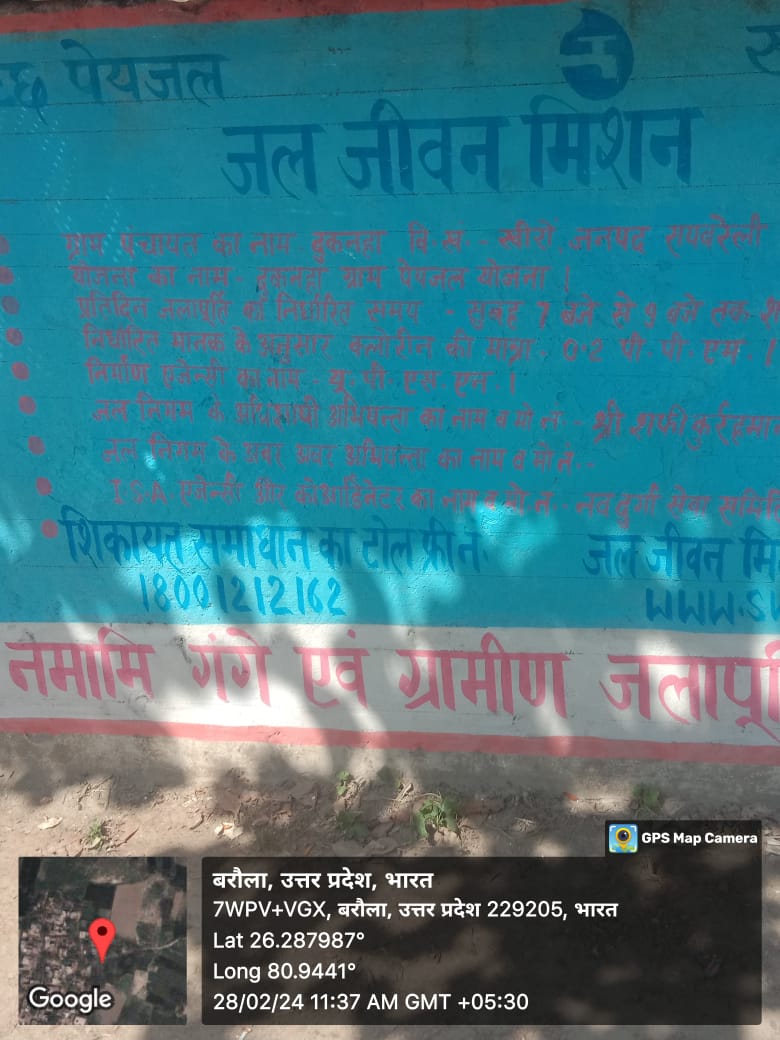 च्छ पेयजल
जल जीवन मिशन
ग्राम पंचायत का नाम - बुकनहा वि. खं. - खीरों, जनपद रायबरेली
योजना का नाम - बुकनहा ग्राम पेयजल योजना |
प्रतिदिन जलापूर्ति का निर्धारित समय - सुबह 7 बजे से 9 बजे तक
निर्धारित मानक के अनुसार क्लोरीन की मात्रा - 0.2 पी. पी. एम. |
निर्माण एजेन्सी का नाम - यू. पी. एस. एन. |
जल निगम के अधिशाषी अभियन्ता का नाम व मो नं. - श्री शफीकुर्रहमान
जल निगम के अवर अवर अभियन्ता का नाम व मो नं. -
I.S.A. एजेन्सी और कोआर्डिनेटर का नाम व मो. नं. - नव दुर्गा सेवा समिति
शिकायत समाधान का टोल फ्री नं.
जल जीवन मि
18001212162
WWW.S
नमामि गंगे एवं ग्रामीण जलापूर्ति
GPS Map Camera
बरौला, उत्तर प्रदेश, भारत
7WPV+VGX, बरौला, उत्तर प्रदेश 229205, भारत
Lat 26.287987°
Long 80.9441°
28/02/24 11:37 AM GMT +05:30
Google